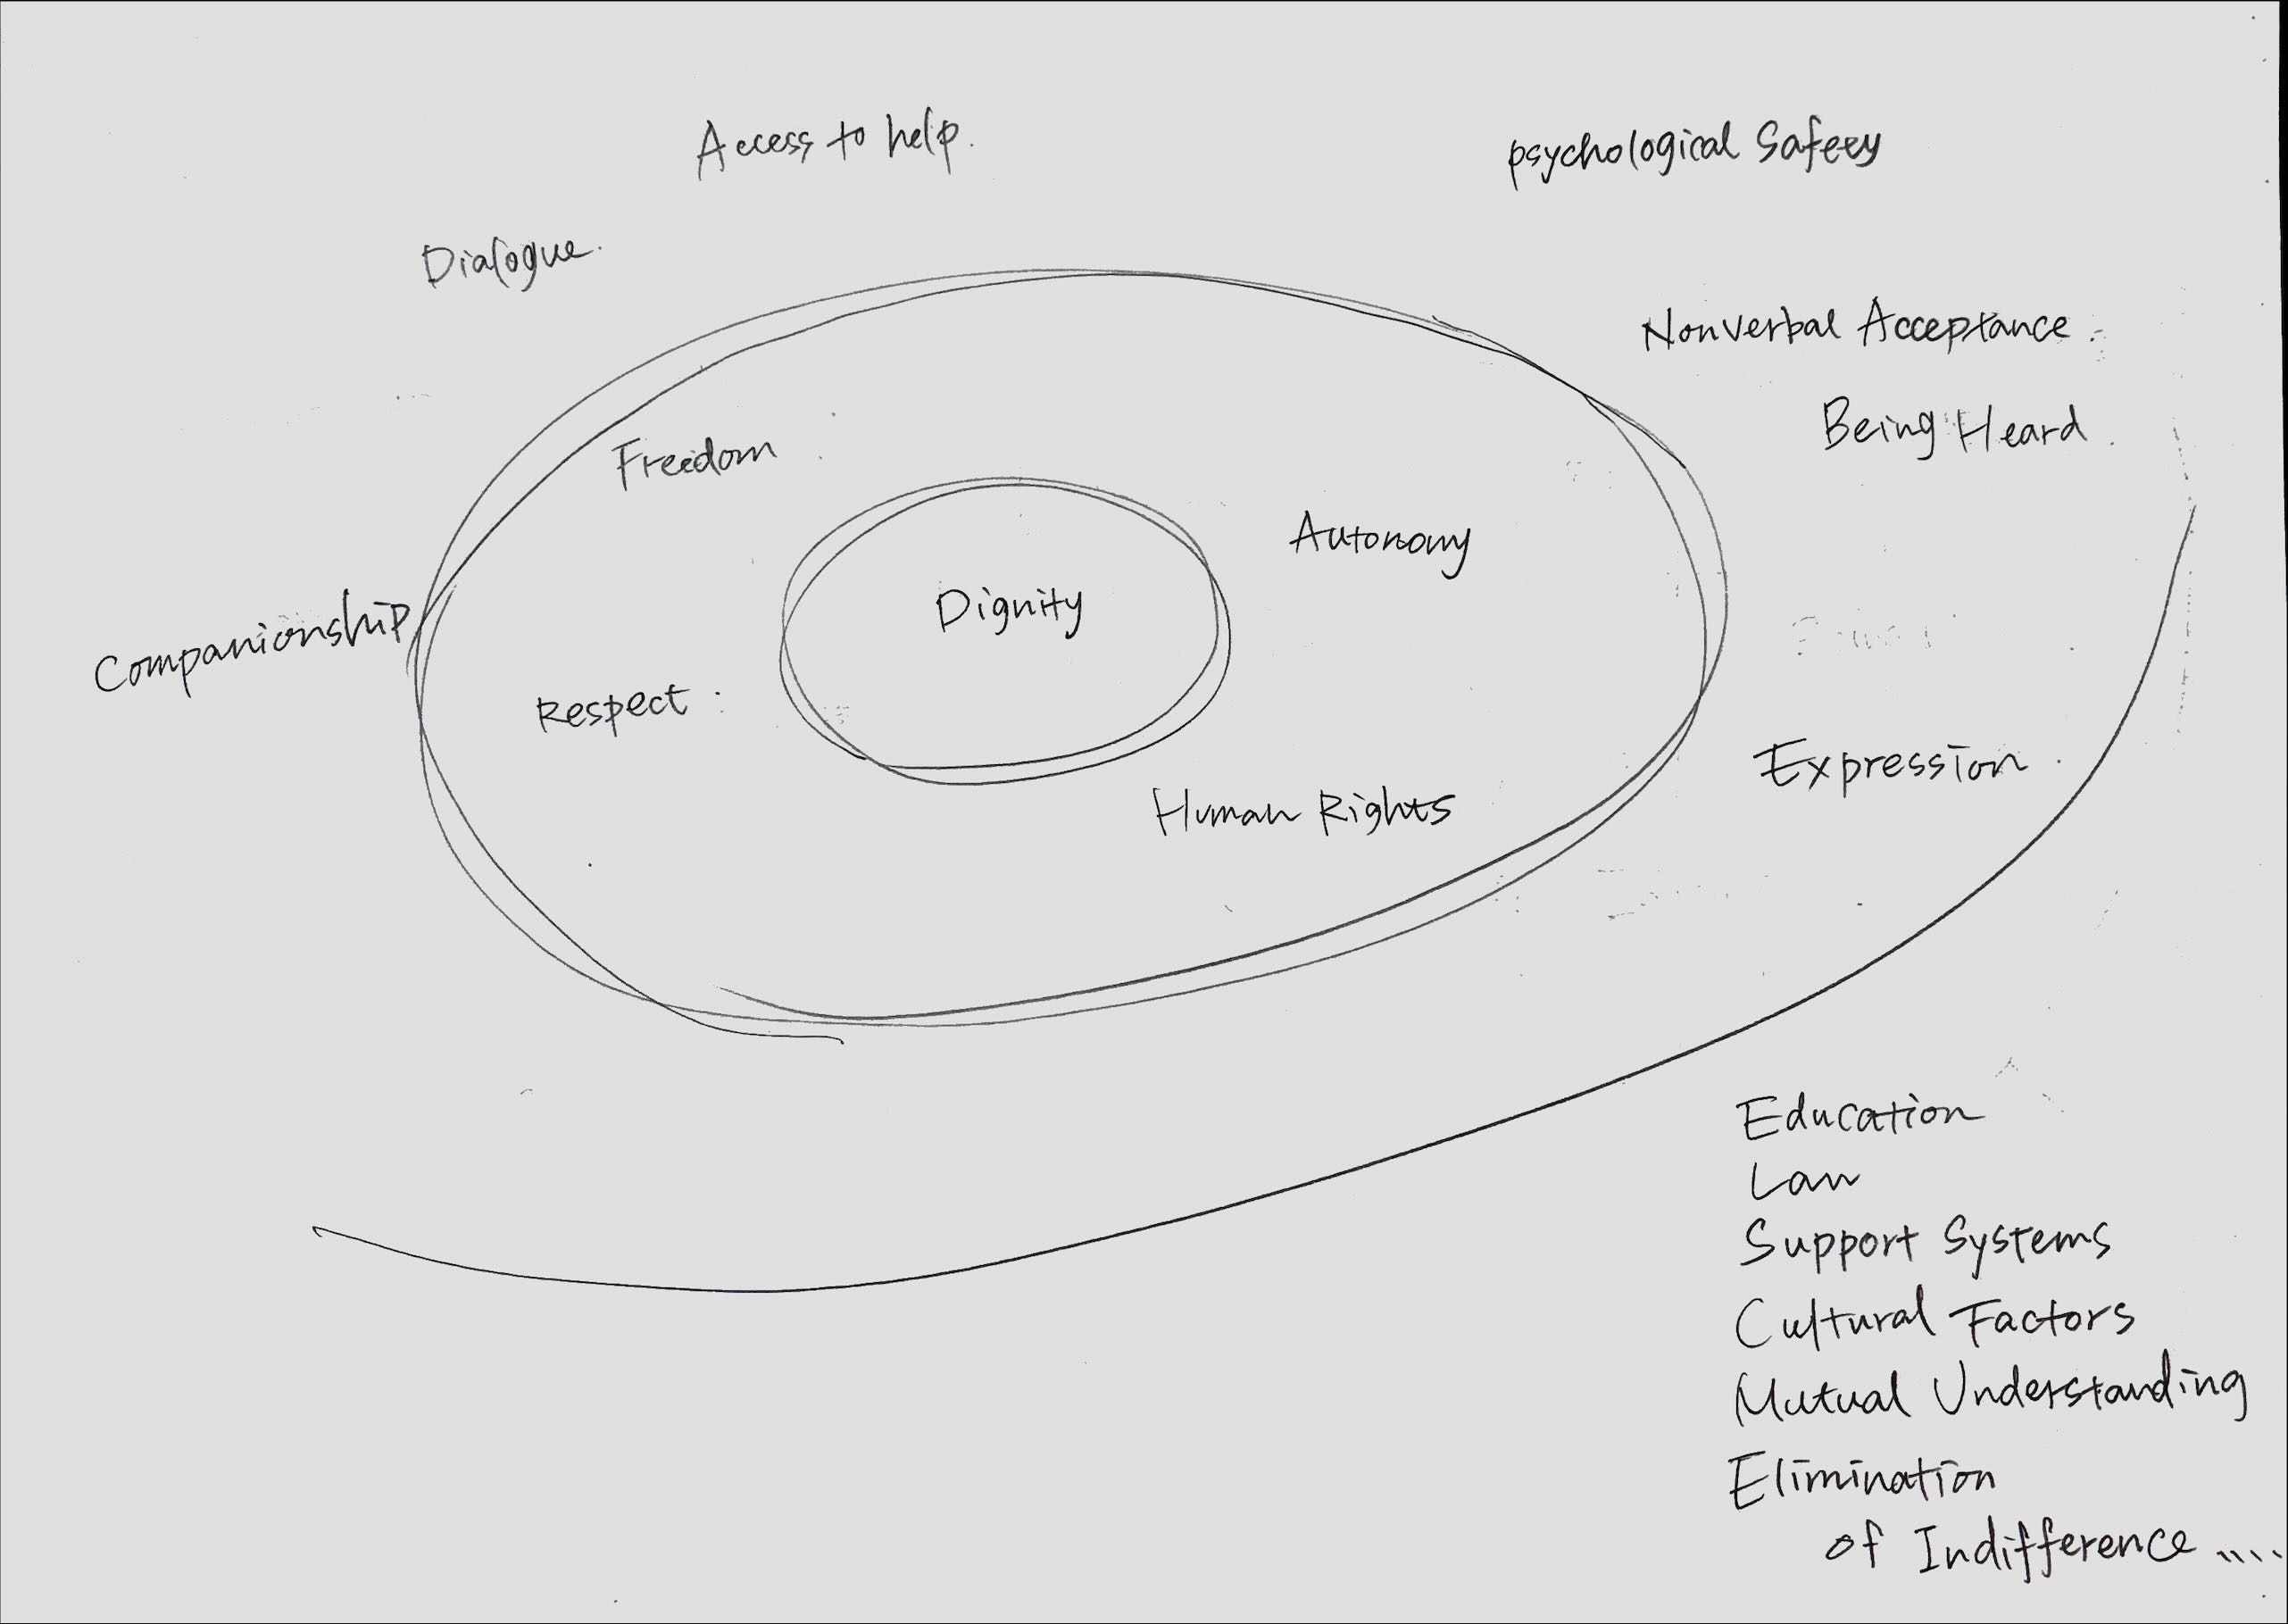 Access to help.
psychological Safety
Dialogue.
Nonverbal Acceptance.
Being Heard.
Freedom
Autonomy
Dignity
Companionship
Respect
Expression.
Human Rights
Education
Law
Support Systems
Cultural Factors
Mutual Understanding
Elimination
of Indifference ....